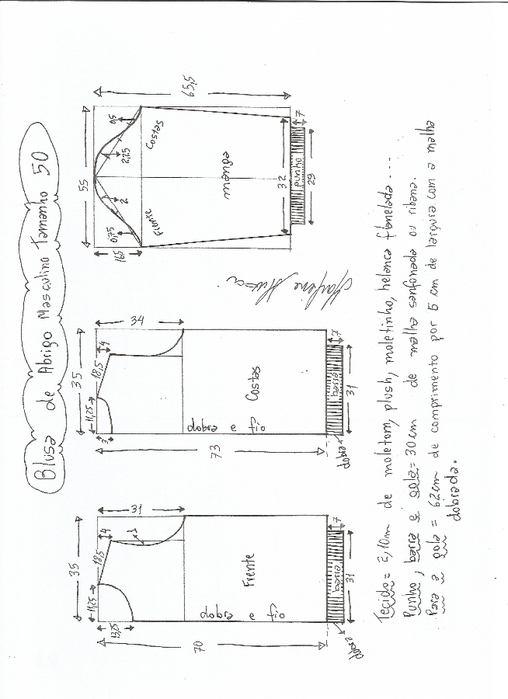 Blusa de Abrigo Masculino Tamanho 50
35
11,25
18,5
4
13,25
1
31
70
Frente
dobra e fio
barra
7
31
dobra
35
11,25
18,5
4
3
34
73
Costas
dobra e fio
barra
7
31
dobra
55
65,5
0,75
2
2,25
0,5
Frente
Costas
manga
32
punho
7
29
de moletom, plush, moletinho, helanca flanelada ....
Punho, barra e gola = 30 cm de malha sanfonada ou ribana.
Para a gola = 62 cm de comprimento por 5 cm de largura com a malha
dobrada.